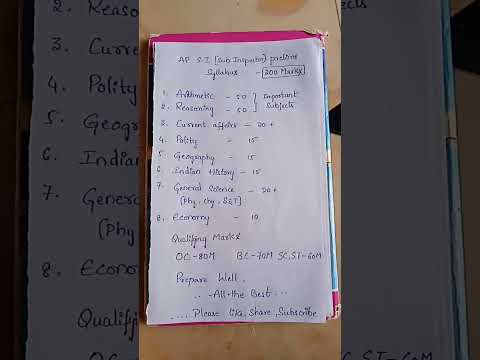 AP S.I [Sub Inspector] prelims
Syllabus - 200 Marks
1. Arithmetic - 50 } Important
2. Reasoning - 50 } Subjects
3. Current affairs - 20+
4. Polity - 15
5. Geography - 15
6. Indian History - 15
7. General Science - 20+
[Phy, chy, S&T]
8. Economy - 10
Qualifying Marks
OC-80M BC-70M SC,ST-60M
Prepare Well.
..-All-the Best...
.... Please Like, Share, Subscribe